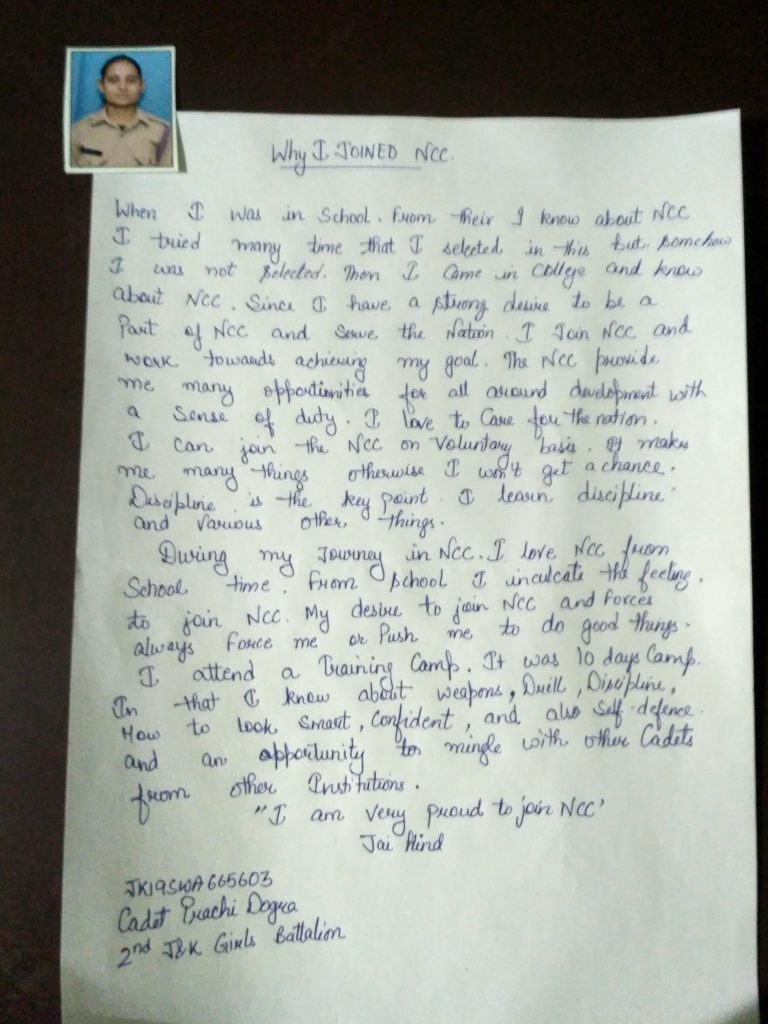 Why I JOINED NCC.
When I was in School. From their I know about NCC
I tried many time that I selected in this but somehow
I was not selected. Then I came in College and know
about NCC. Since I have a strong desire to be a
Part of NCC and Serve the Nation. I Join NCC and
work towards achieving my goal. The NCC provide
me many opportionities for all around development with
a Sense of duty. I love to Care for the nation.
I can join the NCC on Voluntary basis. It makes
me many things otherwise I won't get a chance.
Discipline is the key point. I learn discipline
and various other things.
During my Journey in NCC. I love NCC from
School time. From school I inculcate the feeling.
to join NCC. My desire to join NCC and Forces
always Force me or Push me to do good things.
I attend a Training Camp. It was 10 days Camp.
In that I know about weapons, Drill, Discipline,
How to look smart, Confident, and also Self-defence.
and an opportunity to mingle with other Cadets
from other Institutions.
"I am very proud to join NCC'
Jai Hind
JK19SWA665603
Cadet Prachi Dogra
2nd J&K Girls Battalion